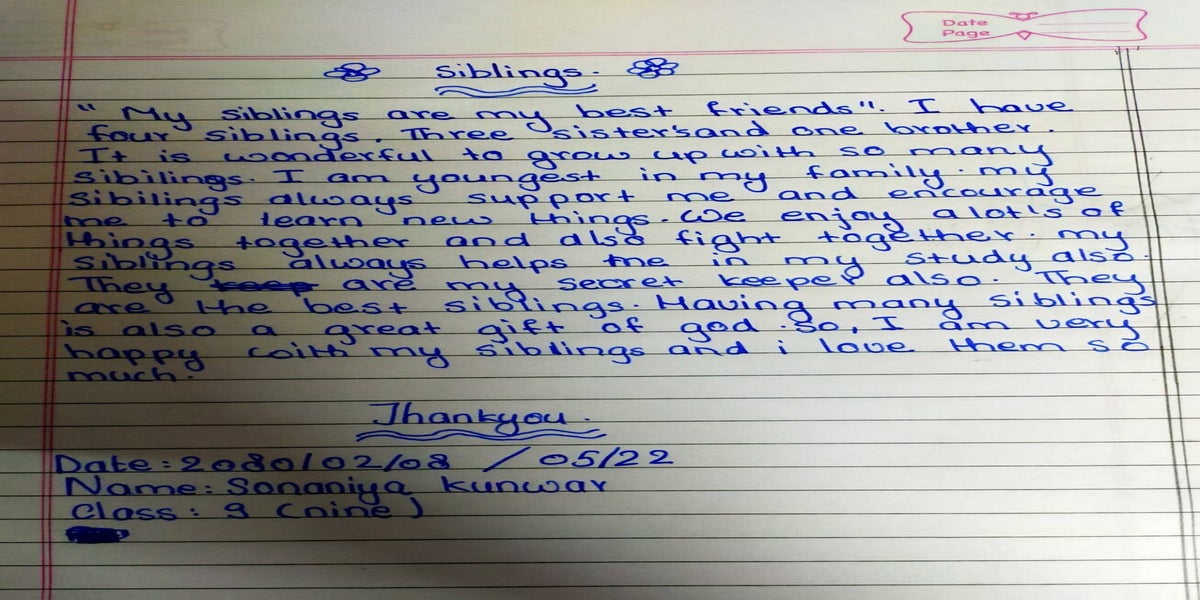 Date
Page
Siblings.
" My siblings are my best friends". I have
four siblings. Three sister'sand one brother.
It is wonderful to grow up with so many
sibilings. I am youngest in my family. my
sibilings always support me and encourage
me to learn new things. We enjoy a lot's of
things together and also fight together. my
siblings always helps me in my study also.
They keep are my secret keeper also. They
are the best siblings. Having many siblings
is also a great gift of god. So, I am very
happy with my siblings and i love them so
much.
Thankyou.
Date : 2080/02/08 / 05/22
Name: Sonaniya Kunwar
Class : 9 (nine)